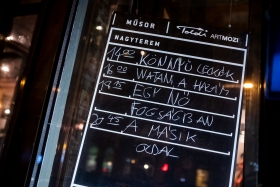 MŰSOR Toldi ARTMOZI
NAGYTEREM
14:00 KÖNNYŰ LECKÉK
16:00 WATAN, A HAZA
18:15 EGY NŐ
FOGSÁGBAN
20:45 A MÁSIK
OLDAL